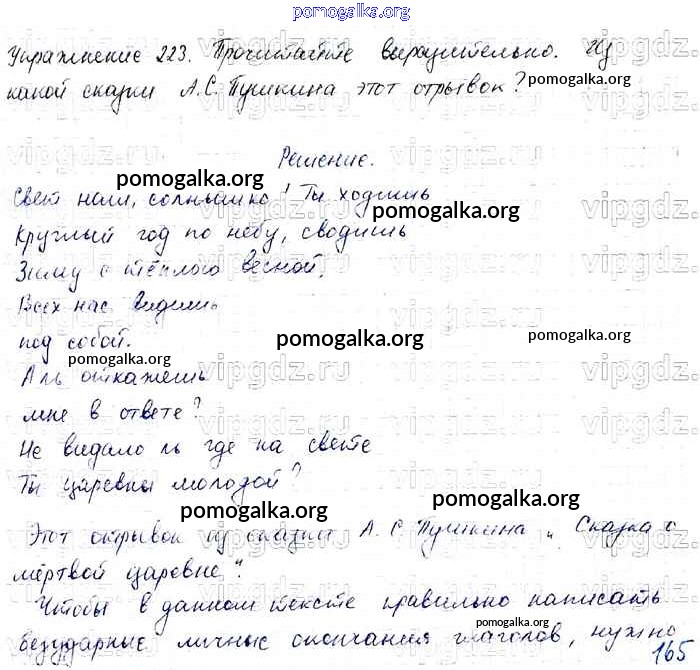 pomogalka.org
Упражнение 223. Прочитайте выразительно. Из
какой сказки А.С. Пушкина этот отрывок?
Решение.
Свет наш, солнышко! Ты ходишь
Круглый год по небу, сводишь
Зиму с тёплою весной,
Всех нас видишь
под собой.
Аль откажешь
мне в ответе?
Не видало ль где на свете
Ты царевны молодой?
Этот отрывок из сказки А. С. Пушкина „Сказка о
мёртвой царевне".
Чтобы в данном тексте правильно написать
безударные личные окончания глаголов, нужно
165